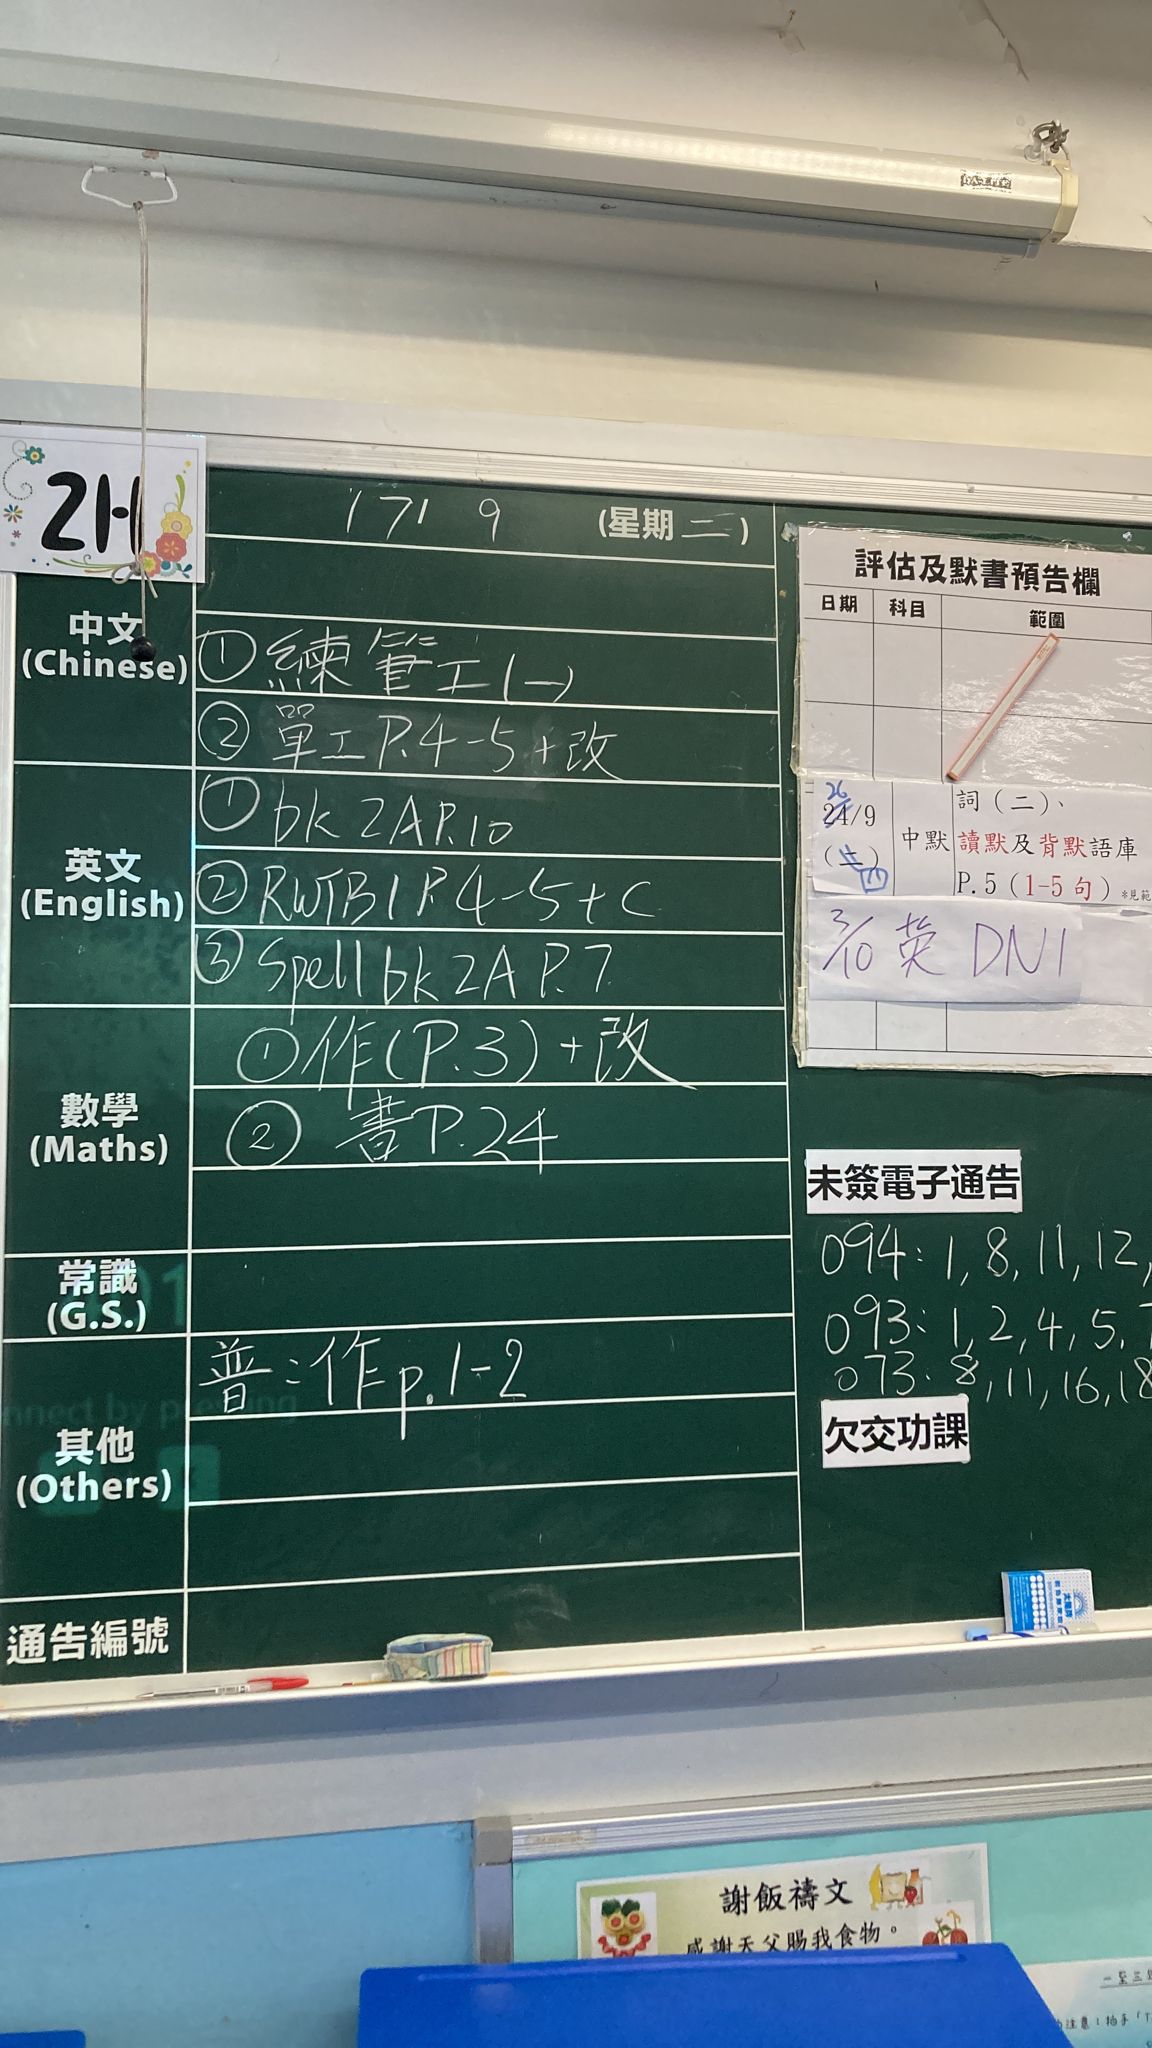 2H
17/9 (星期二)
中文
(Chinese)
① 練筆工(一)
② 單工P.4-5+改
英文
(English)
① bk 2A P.10
② RWTB1 P.4-5+C
③ Spell bk 2A P.7
數學
(Maths)
① 作(P.3)+改
② 書P.24
常識
(G.S.)
其他
(Others)
普:作p.1-2
nnect by pressing
通告編號
評估及默書預告欄
日期 科目 範圍
26
24/9
中默
詞(二)、
讀默及背默語庫
P.5(1-5句) *見範
3/10 英 DN1
未簽電子通告
094: 1, 8, 11, 12,
093: 1, 2, 4, 5,
073: 8, 11, 16, 18
欠交功課
謝飯禱文
感謝天父賜我食物。